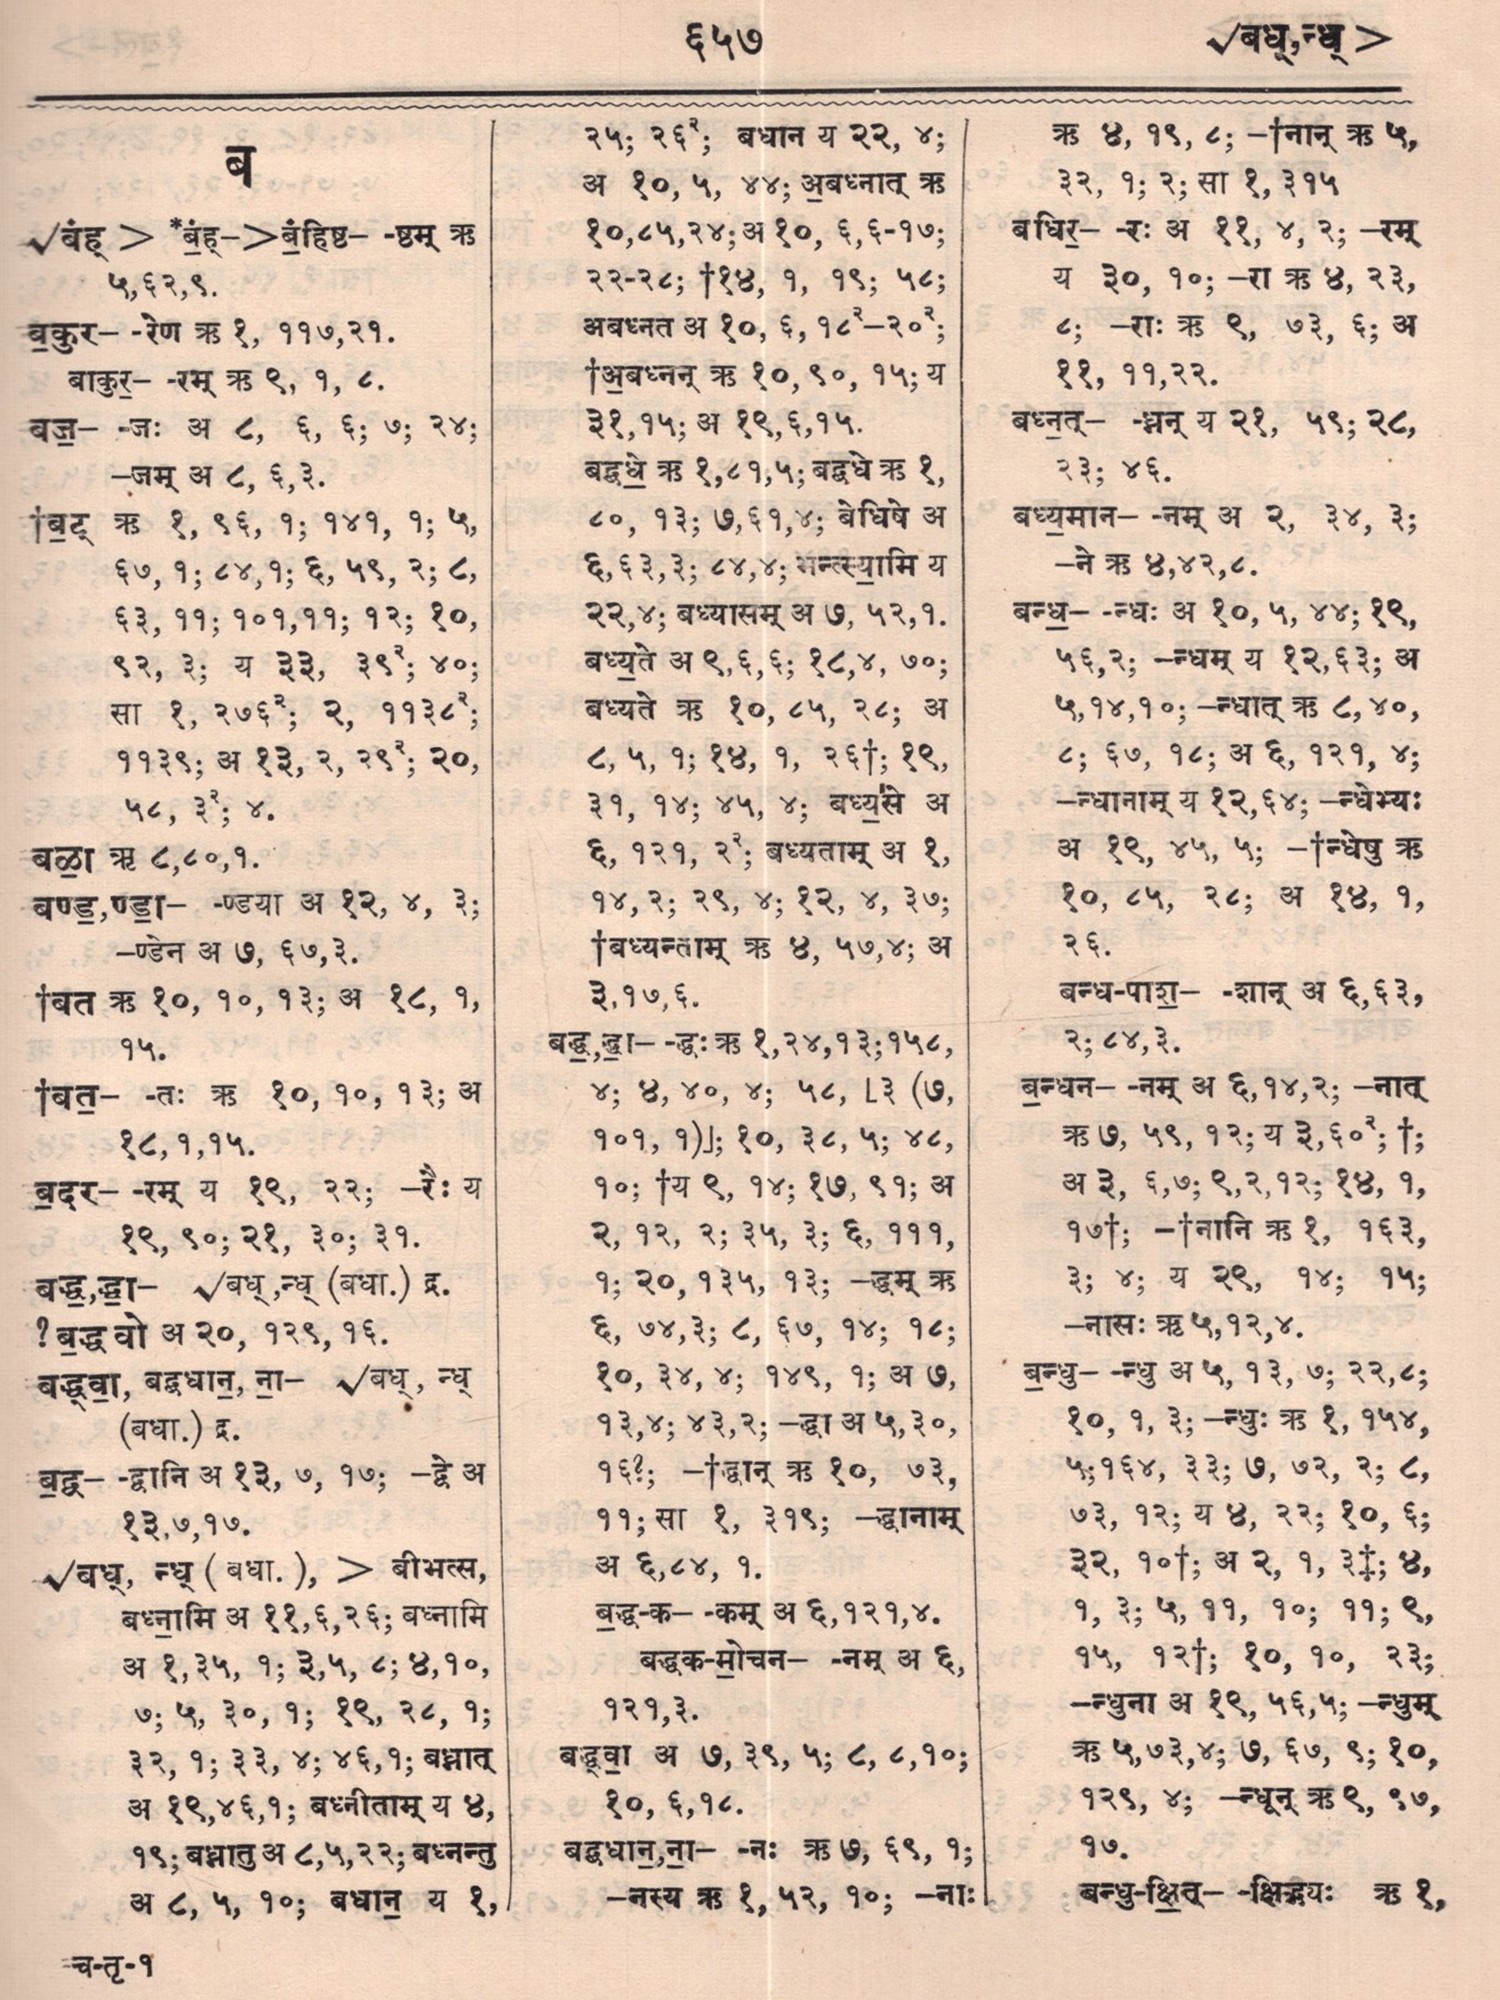 ६५७
√बध्,न्ध् >
ब
√बंह् > *बं॒ह्—>बं॒हिष्ठ— -ष्ठम् ऋ
५,६२,९.
ब॒कुर— -रेण ऋ १, ११७,२१.
बाकुर॒— -रम् ऋ ९, १, ८.
बज॒— -जः अ ८, ६, ६; ७; २४;
—जम् अ ८, ६,३.
†ब॒ट् ऋ १, ९६, १; १४१, १; ५,
६७, १; ८४,१; ६, ५९, २; ८,
६३, ११; १०१,११; १२; १०,
९२, ३; य ३३, ३९²; ४०;
सा १, २७६²; २, ११३८²;
११३९; अ १३, २, २९²; २०,
५८, ३²; ४.
बळा॒ ऋ ८,८०,१.
बण्ड॒,ण्डा॒— -ण्डया अ १२, ४, ३;
—ण्डेन अ ७, ६७,३.
†बत ऋ १०, १०, १३; अ १८, १,
१५.
†बत॒— -तः ऋ १०, १०, १३; अ
१८,१,१५.
ब॒दर— -रम् य १९, २२; —रैः य
१९, ९०; २१, ३०; ३१.
बद्ध॒,द्धा॒— √बध्,न्ध् (बधा.) द्र.
?ब॒द्ध वो अ २०, १२९, १६.
बद्ध्वा॒, बद्बधान॒, ना॒— √बध्, न्ध्
(बधा.) द्र.
ब॒द्व— -द्वानि अ १३, ७, १७; —द्वे अ
१३,७,१७.
√बध्, न्ध् ( बधा. ), > बीभत्स,
बध्ना॒मि अ ११,६,२६; बध्नामि
अ १,३५, १; ३,५, ८; ४,१०,
७; ५, ३०, १; १९, २८, १;
३२, १; ३३, ४; ४६,१; बध्नात्
अ १९,४६,१; बध्नीताम् य ४,
१९; बध्नातु अ ८,५,२२; बध्नन्तु
अ ८, ५, १०; बधान॒ य १,
च-तृ-१
२५; २६²; बधान य २२, ४;
अ १०, ५, ४४; अ॒बध्नात् ऋ
१०,८५,२४; अ १०, ६,६-१७;
२२-२८; †१४, १, १९; ५८;
अबध्नत अ १०, ६, १८²—२०²;
†अ॒बध्नन् ऋ १०,९०, १५; य
३१,१५; अ १९,६,१५.
बद्बधे॒ ऋ १,८१,५; बद्बधे ऋ १,
८०, १३; ७,६१,४; बेधिषे अ
६,६३,३; ८४,४; भन्त्स्या॒मि य
२२,४; बध्यासम् अ ७, ५२,१.
बध्य॒ते अ ९,६,६; १८,४, ७०;
बध्यते ऋ १०, ८५, २८; अ
८, ५, १; १४, १, २६†; १९,
३१, १४; ४५, ४; बध्य॒से॑ अ
६, १२१, २²; बध्यताम् अ १,
१४,२; २९, ४; १२, ४, ३७;
†बध्यन्ताम् ऋ ४, ५७,४; अ
३,१७,६.
बद्ध॒,द्धा॒— -द्धः ऋ १,२४,१३;१५८,
४; ४, ४०, ४; ५८, ⌊३ (७,
१०१, १)⌋; १०, ३८, ५; ४८,
१०; †य ९, १४; १७, ९१; अ
२, १२, २; ३५, ३; ६, १११,
१; २०, १३५, १३; —द्धम् ऋ
६, ७४,३; ८, ६७, १४; १८;
१०, ३४, ४; १४९, १; अ ७,
१३,४; ४३,२; —द्धा अ ५,३०,
१६?; —†द्धान् ऋ १०, ७३,
११; सा १, ३१९; —द्धानाम्
अ ६,८४, १.
ब॒द्ध-क— -कम् अ ६,१२१,४.
बद्धक-मो॒चन— -नम् अ ६,
१२१,३.
बद्ध्वा॒ अ ७, ३९, ५; ८, ८,१०;
१०, ६,१८.
बद्बधान॒,ना॒— -नः ऋ ७, ६९, १;
—नस्य ऋ १, ५२, १०; —नाः
ऋ ४, १९, ८; —†नान् ऋ ५,
३२, १; २; सा १, ३१५
बधिर॒— -रः अ ११, ४, २; —रम्
य ३०, १०; —रा ऋ ४, २३,
८; —राः ऋ ९, ७३, ६; अ
११, ११,२२.
बध्न॒त्— -ध्नन् य २१, ५९; २८,
२३; ४६.
बध्य॒मान— -नम् अ २, ३४, ३;
—ने ऋ ४,४२,८.
बन्ध॒— -न्धः अ १०, ५, ४४; १९,
५६,२; —न्धम् य १२,६३; अ
५,१४,१०; —न्धात् ऋ ८,४०,
८; ६७, १८; अ ६, १२१, ४;
—न्धानाम् य १२,६४; —न्धेभ्यः
अ १९, ४५, ५; —†न्धेषु ऋ
१०, ८५, २८; अ १४, १,
२६.
बन्ध-पाश॒— -शान् अ ६,६३,
२; ८४,३.
ब॒न्धन— -नम् अ ६,१४,२; —नात्
ऋ ७, ५९, १२; य ३,६०²; †;
अ ३, ६,७; ९,२,१२; १४, १,
१७†; —†नानि ऋ १, १६३,
३; ४; य २९, १४; १५;
—नासः ऋ ५,१२,४.
ब॒न्धु— -न्धु अ ५, १३, ७; २२,८;
१०, १, ३; —न्धुः ऋ १, १५४,
५;१६४, ३३; ७, ७२, २; ८,
७३, १२; य ४, २२; १०, ६;
३२, १०†; अ २, १, ३‡; ४,
१, ३; ५, ११, १०; ११; ९,
१५, १२†; १०, १०, २३;
—न्धुना अ १९, ५६,५; —न्धुम्
ऋ ५,७३,४; ७, ६७, ९; १०,
१२९, ४; —न्धून् ऋ ९, ९७,
१७.
बन्धु-क्षि॒त्— -क्षिद्भ्यः ऋ १,